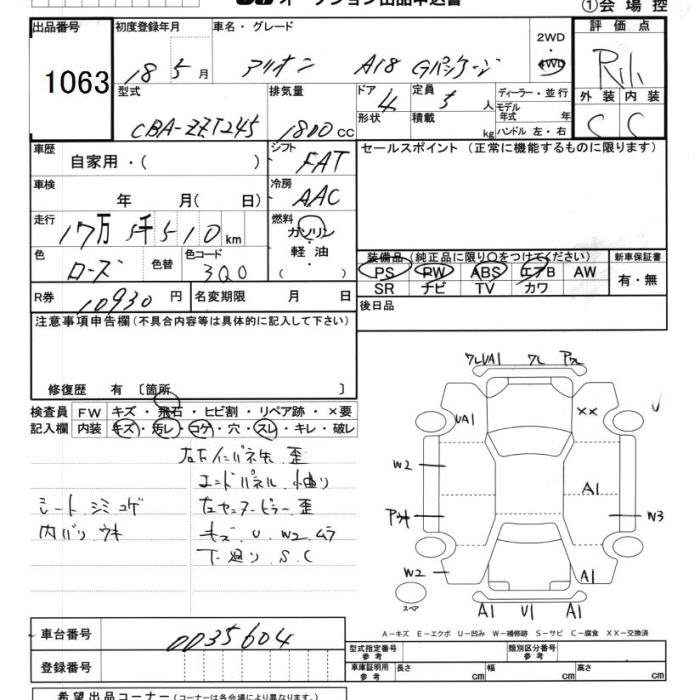 ①会場控
出品番号 初度登録年月 車名・グレード 2WD 4WD 評価点
1063 18年 5月 アリオン A18 Gパッケージ
型式 排気量 ドア 定員 ディーラー・並行 外装 内装
CBA-ZZT245 1800cc 4 5人 モデル年式 年 C C
形状 積載 kg ハンドル 左・右
車歴 自家用・( ) シフト FAT セールスポイント(正常に機能するものに限ります)
車検 年 月(日) 冷房 AAC
走行 17万5千510km 燃料 ガソリン・軽油
色 ローズ 色替 色コード 3Q0 装備品(純正品に限り○をつけてください) 新車保証書
PS PW ABS エアB AW 有・無
R券 10930円 名変期限 月 日 SR ナビ TV カワ
注意事項申告欄(不具合内容等は具体的に記入して下さい) 後日品
修復歴 有〔箇所 〕
検査員 FW キズ・飛石・ヒビ割・リペア跡・×要
記入欄 内装 キズ・汚レ・コゲ・穴・スレ・キレ・破レ
エンドパネル 曲り
シート シミ コゲ
内バリ ウキ キズ U W2 ムラ
下廻り S.C
UA1 XX U
W2 A1
W3
W2 A1
スペア A1 U1 A1
A-キズ E-エクボ U-凹み W-補修跡 S-サビ C-腐食 XX-交換済
車台番号 0035604 型式指定番号 参考 類別区分番号 参考
登録番号 車庫証明用 参考 長さ cm 幅 cm 高さ cm
希望出品コーナー(コーナーは各会場により異なります。)